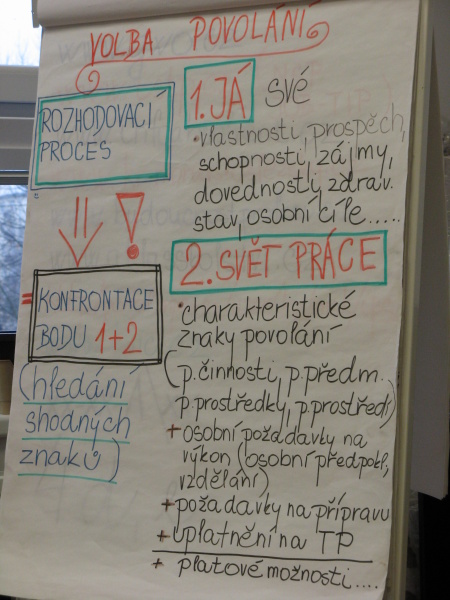 VOLBA POVOLÁNÍ
ROZHODOVACÍ
PROCES
!
= KONFRONTACE
BODU 1+2
(hledání
shodných
znaků)
1. JÁ své
• vlastnosti, prospěch,
schopnosti, zájmy,
dovednosti, zdrav.
stav, osobní cíle.....
2. SVĚT PRÁCE
• charakteristické
znaky povolání
(p. činnosti, p. předm.
p. prostředky, p. prostředí)
+ osobní požadavky na
výkon (osobní předpokl.,
vzdělání)
+ požadavky na přípravu
+ uplatnění na TP
+ platové možnosti....